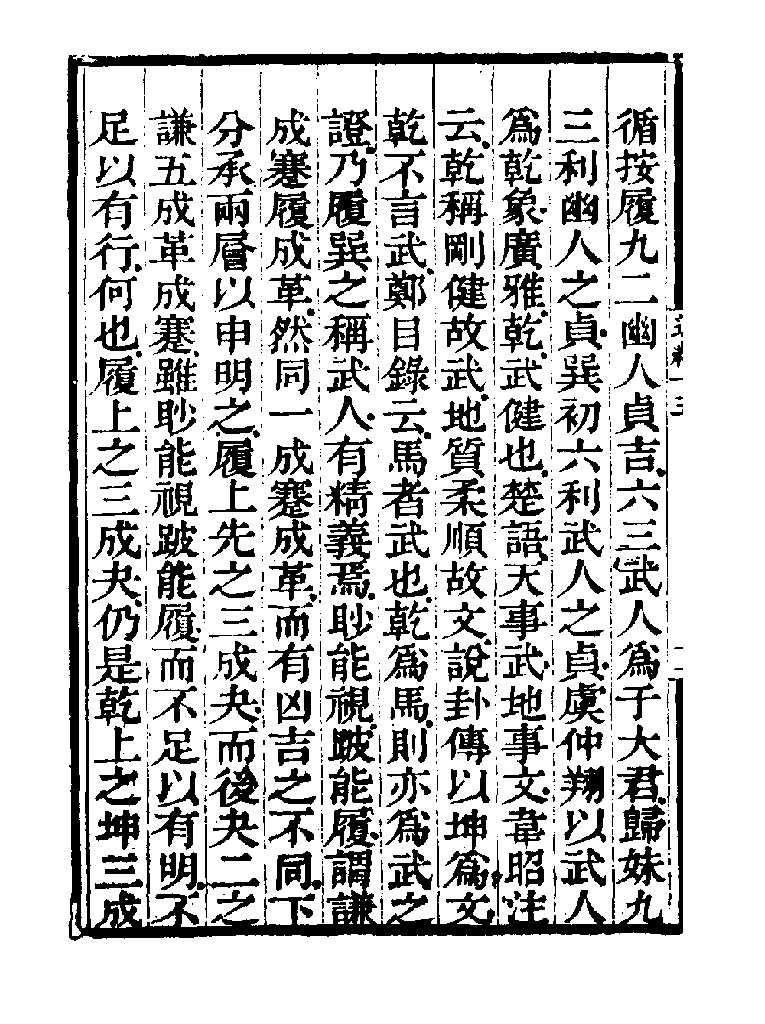 循按履九二幽人貞吉六三武人爲于大君歸妹九
三利幽人之貞巽初六利武人之貞虞仲翔以武人
爲乾象廣雅乾武健也楚語天事武地事文韋昭注
云乾稱剛健故武地質柔順故文說卦傳以坤爲文
乾不言武鄭目錄云馬者武也乾爲馬則亦爲武之
證乃履巽之稱武人有精義焉眇能視跛能履謂謙
成蹇履成革然同一成蹇成革而有凶吉之不同下
分承兩層以申明之履上先之三成夬而後夬二之
謙五成革成蹇雖眇能視跛能履而不足以有明不
足以有行何也履上之三成夬仍是乾上之坤三成